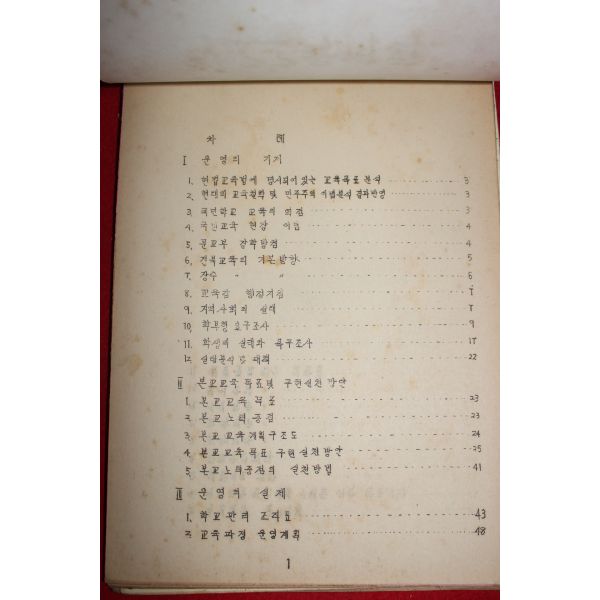 차 례
Ⅰ 운영의 기저
1. 헌법교육법에 명시되어 있는 교육목표 분석 3
2. 현대의 교육철학 및 민주주의 이념분석 결과반영 3
3. 국민학교 교육의 의점 3
4. 국민교육 헌장 이념 4
5. 문교부 장학방침 4
6. 전북교육의 기본방향 5
7. 장수 〃 〃 6
8. 교육감 행정지침 7
9. 지역사회의 실태 7
10. 학부형 요구조사 9
11. 학생의 실태와 욕구조사 17
12. 실태분석 및 대책 22
Ⅱ 본교교육 목표및 구현실천 방안
1. 본교교육 목표 23
2. 본교노력중점 23
3. 본교교육계획구조도 24
4. 본교교육목표 구현실천방안 25
5. 본교노력중점의 실천방법 41
Ⅲ 운영의 실제
1. 학교관리 조직표 43
2. 교육과정 운영계획 48
1